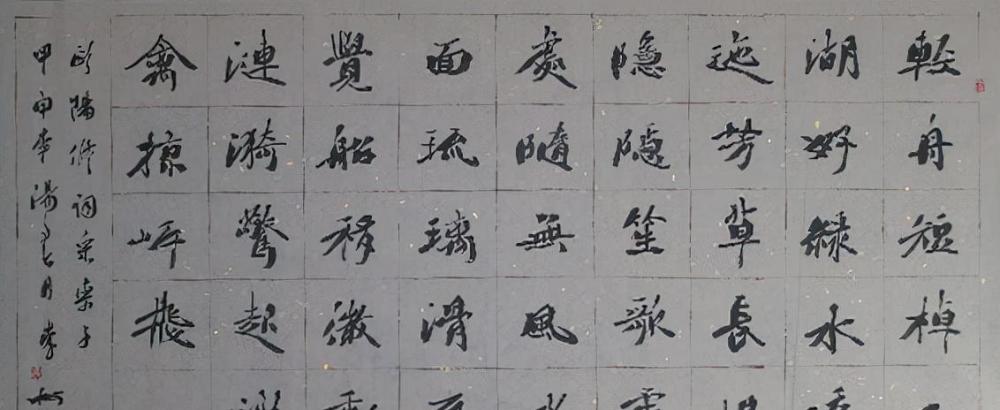 輕舟短棹
湖好綠水
迤芳草長
隱隱笙歌
處隨無風
面琉璃滑
覺船移微
漣漪驚起
禽掠岸飛
歐陽修詞采桑子
甲申年